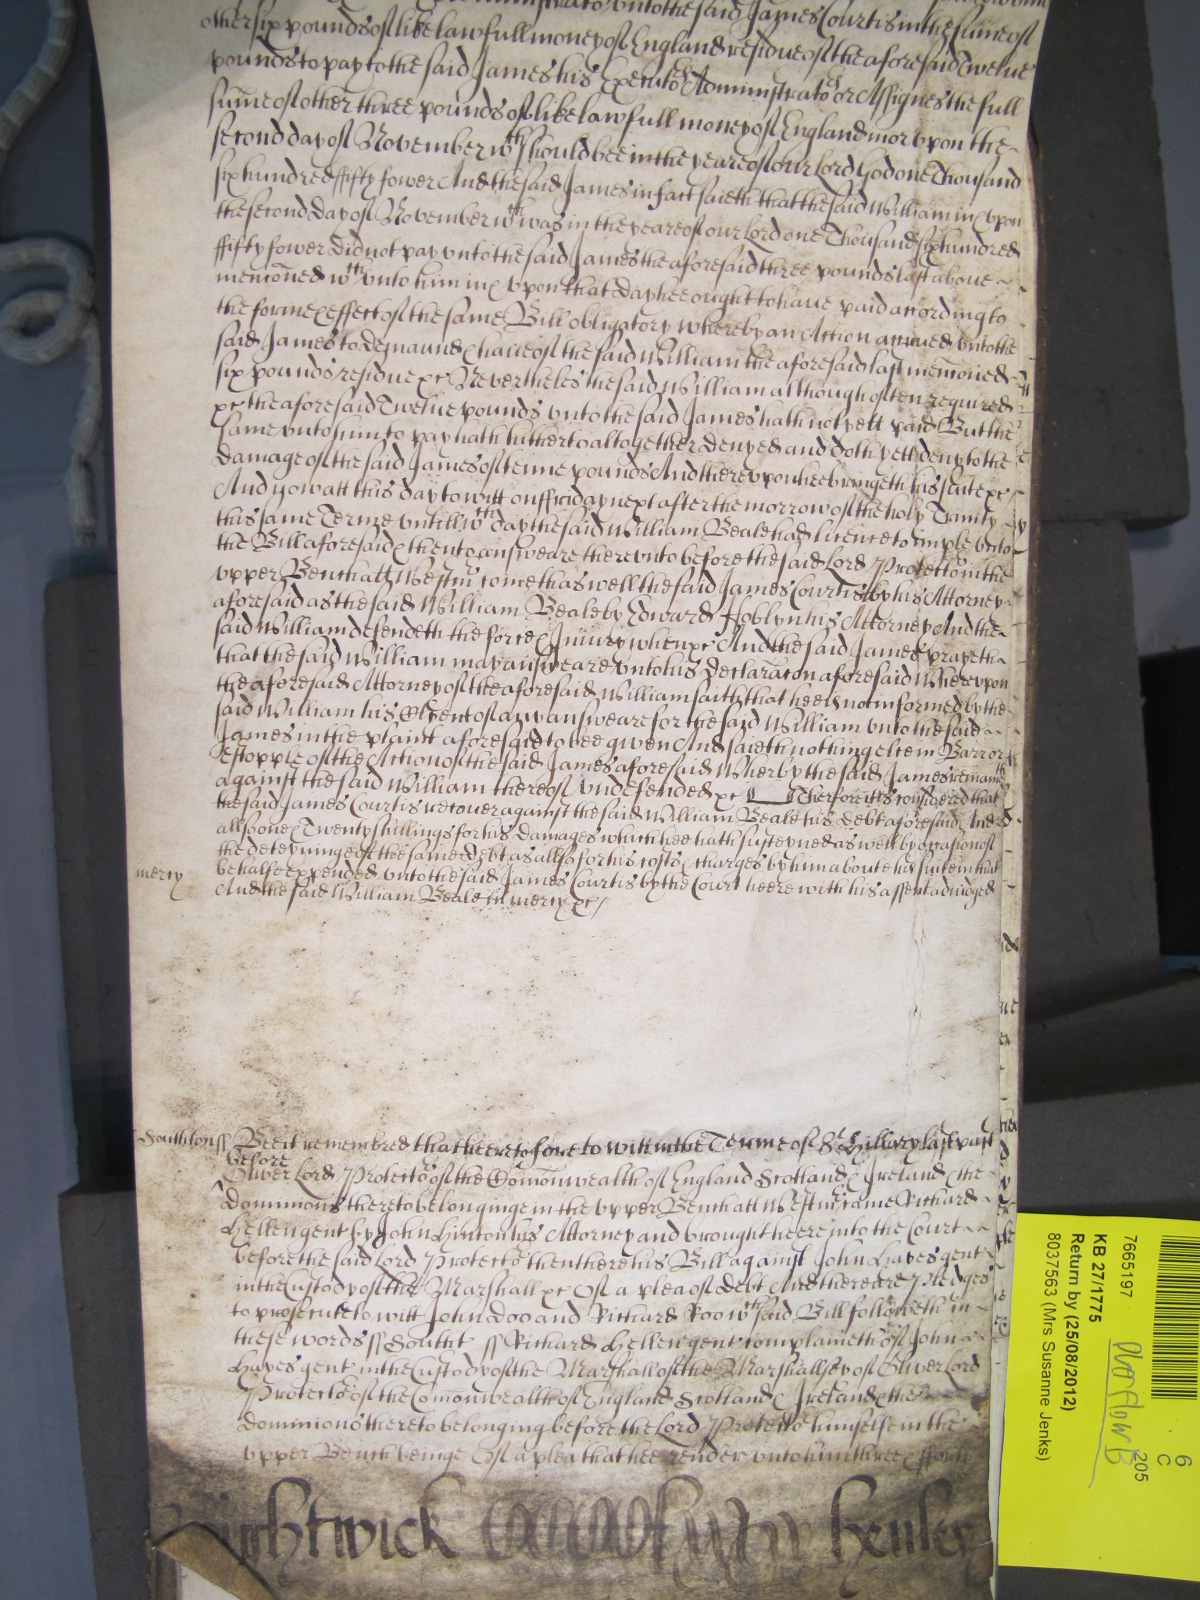 unto the said James Courtis in the sume of
other six pounds of like lawfull money of England residue of the aforesaid Twelve
pounds to pay to the said James his Executors Administrators or Assignes the full
sume of other three pounds of like lawfull money of England in or vpon the
second day of November wch should bee in the yeare of our Lord God one Thousand
six hundred ffifty fower And the said James in fact saieth that the said William in & vpon
the second Day of November wch was in the yeare of our Lord one Thousand six hundred
ffifty fower did not pay vnto the said James the aforesaid three pounds last above
menconed wch vnto him in & vpon that day hee ought to have paid according to
the forme & effect of the same Bill obligatory whereby an Action accrued vnto the
said James to demaund & have of the said William the aforesaid last menconed
six pounds residue &c Neverthelesse the said William although often required
&c the aforesaid Twelve pounds vnto the said James hath not yett paid But the
same vnto him to pay hath hitherto altogether denyed and doth yett deny to the
damage of the said James of tenne pounds And therevpon hee bringeth his suite &c
And now att this day to witt on ffriday next after the morrow of the holy Trinity
this same Terme vntill wch day the said William Beale had licence to imple vnto
the Bill aforesaid & then to answeare therevnto before the said Lord Protector in the
vpper Bench att Westmr come th aswell the said James Courtis by his Attorney
aforesaid as the said William Beale by Edward Hoblyn his Attorney And the
said William defendeth the force & Iniury when &c And the said James prayeth
that the said William may answeare vnto his declaracon aforesaid Wherevpon
the aforesaid Attorney of the aforesaid William saith that hee is not informed by the
said William his Clyent of any answeare for the said William vnto the said
James in the plaint aforesaid to bee given And saieth nothing else in Barr or
Estopple of the Action of the said James aforesaid Wherby the said James remaineth
against the said William thereof vndefended &c Therfore itt is considered that
the said James Courtis recover against the said William Beale his debt aforesaid And
allsoe Twenty shillings for his damages which hee hath susteyned as well by occasion of
the deteyninge of the same debt as allso for his costs & charges by him about his suite in that
mercy behalfe expended vnto the said James Courtis by the Court heere with his assent adiudged
And the said William Beale in mercy &c
Southton ss Bee it remembred that heeretofore to witt in the Terme of St Hillary last past
before Oliver Lord Protector of the Comonwealth of England Scotland & Ireland & the
dominions thereto belonginge in the vpper Bench att Westmr came Richard
Hellen gent by John Hinton his Attorney and brought heere into the Court
before the said Lord Protector then there his Bill against John Hayes gent
in the Custody of the Marshall &c Of a plea of debt And there are Pledges
to prosecute to witt John Doo and Richard Roo wch said Bill followeth in
these words ss Southt ss Richard Hellen gent complaineth of John
Hayes gent in the Custody of the Marshall of the Marshallsey of Oliver Lord
Protector of the Comonwealth of England Scotland & Ireland & the
dominions thereto belonging before the Lord Protector himselfe in the
vpper Bench beinge Of a plea that hee render vnto him three
Brightwick Henley
7665197
KB 27/1775
Return by (25/08/2012)
8037563 (Mrs Susanne Jenks)
6
C
205